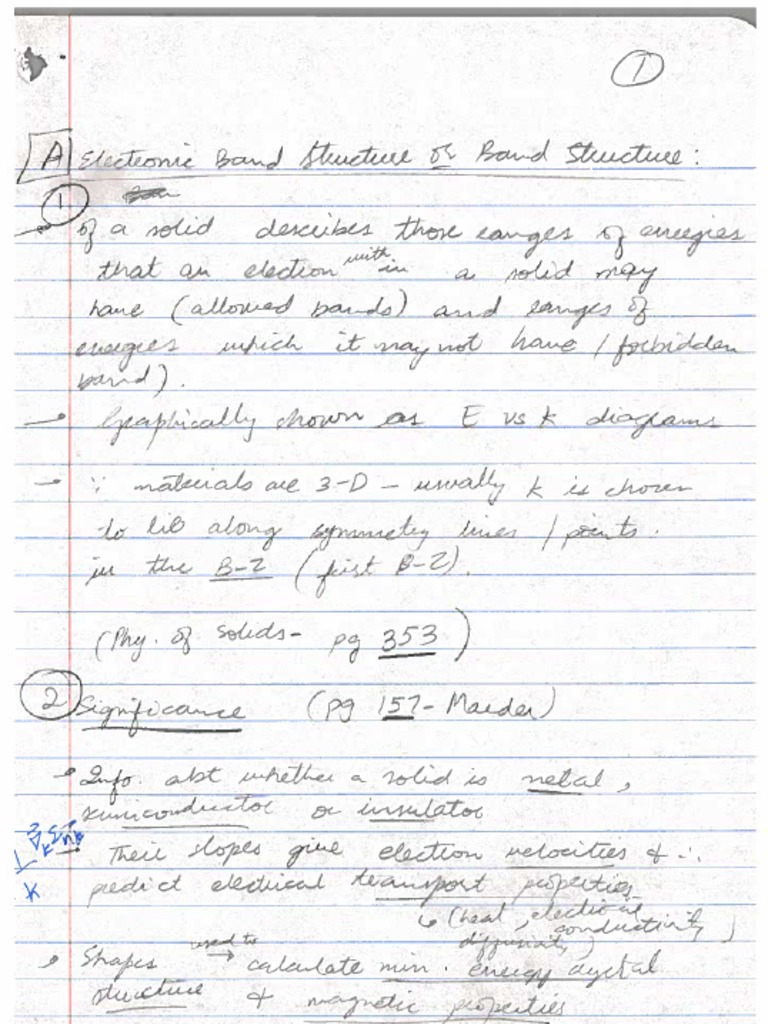 1
A Electronic Band Structure or Band Structure :
1
→ of a solid describes those ranges of energies
that an electron within a solid may
have (allowed bands) and ranges of
energies which it may not have (forbidden
band).
→ Graphically shown as E vs k diagrams
→ ∵ materials are 3-D – usually k is chosen
to lie along symmetry lines / points
in the B-Z (first B-Z).
(Phy. of Solids- pg 353)
2 Significance (pg 157- Marder)
→ Info. abt whether a solid is metal,
semiconductor or insulator
→ Their slopes give electron velocities & ∴
predict electrical transport properties
↳ (heat, electrical conductivity,
diffusivity)
→ Shapes used to → calculate min. energy crystal
structure & magnetic properties